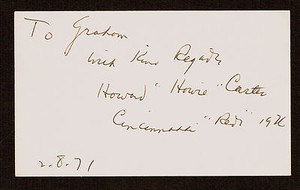 To Graham
With Kind Regards
Howard "Howie" Carter
Cincinnati "Reds" 1926
2.8.71